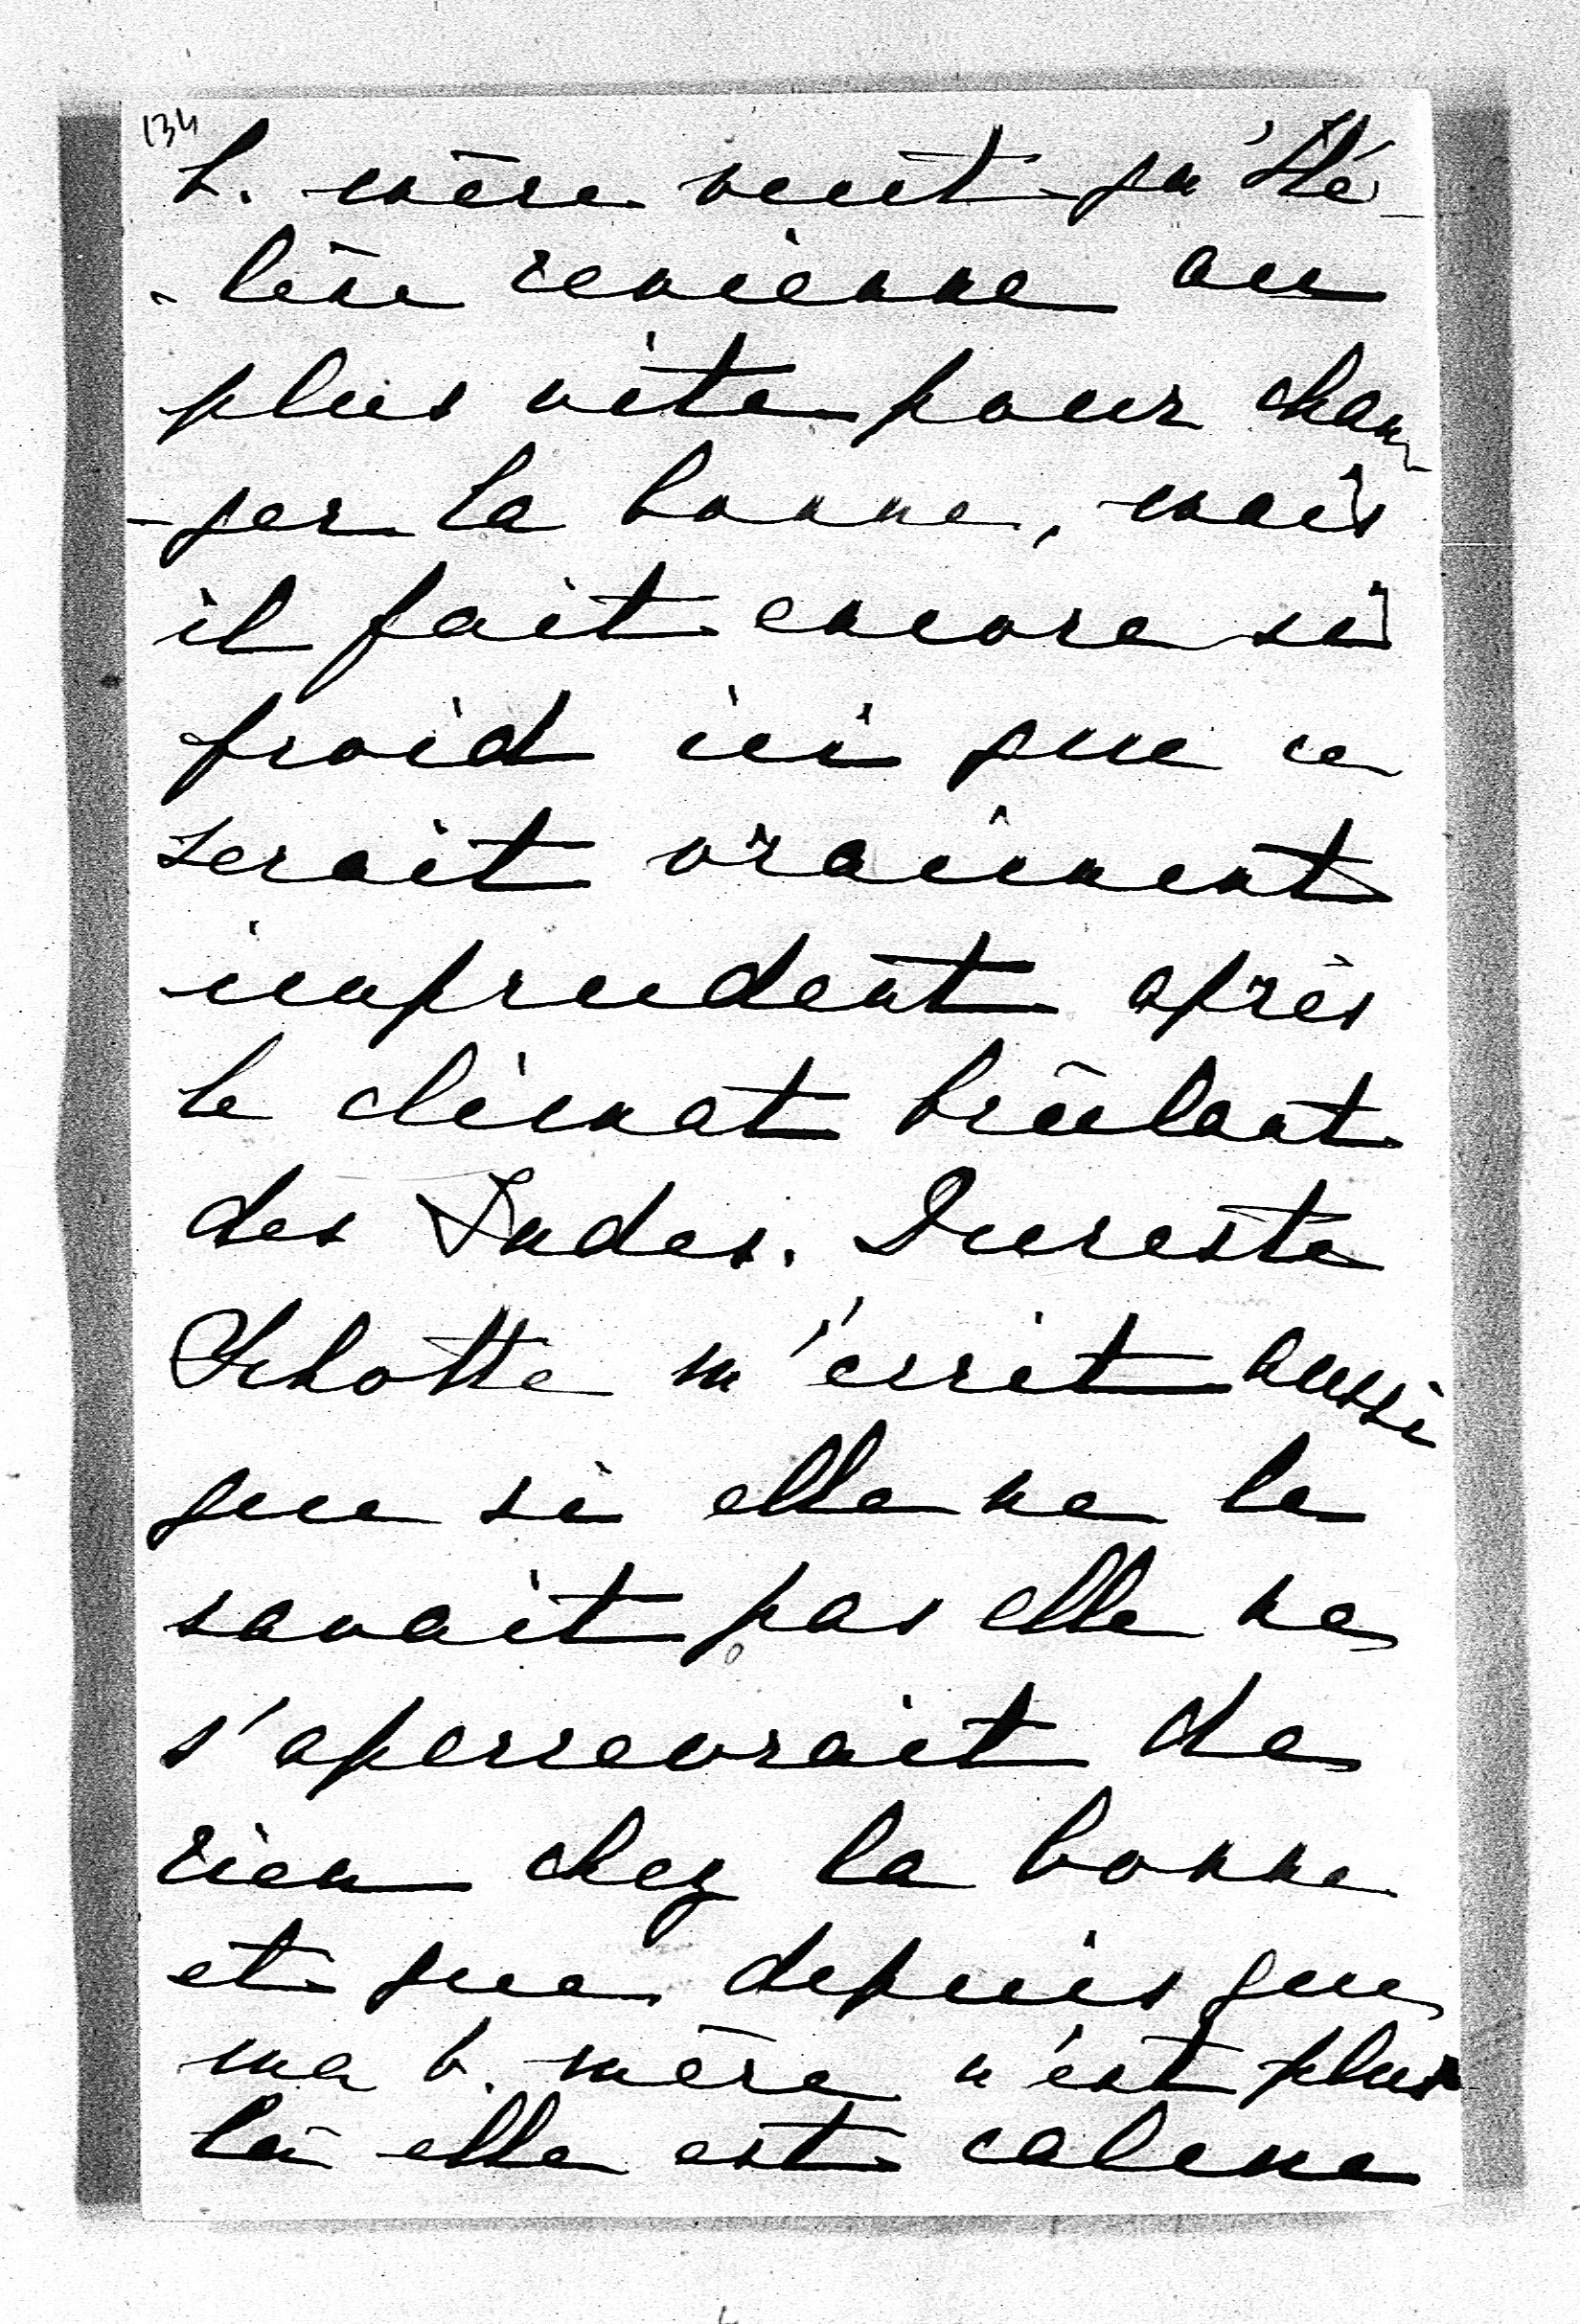 134
b. mère veut qu'Hé-
-lène revienne au
plus vite pour chan-
-ger la bonne, mais
il fait encore si
froid ici que ce
serait vraiment
imprudent après
le climat brûlant
des Indes. Dureste
Schotte m'écrit aussi
que si elle ne le
savait pas elle ne
s'apercevrait de
rien chez la bonne
et que depuis que
ma b. mère n'est plus
là elle est calme